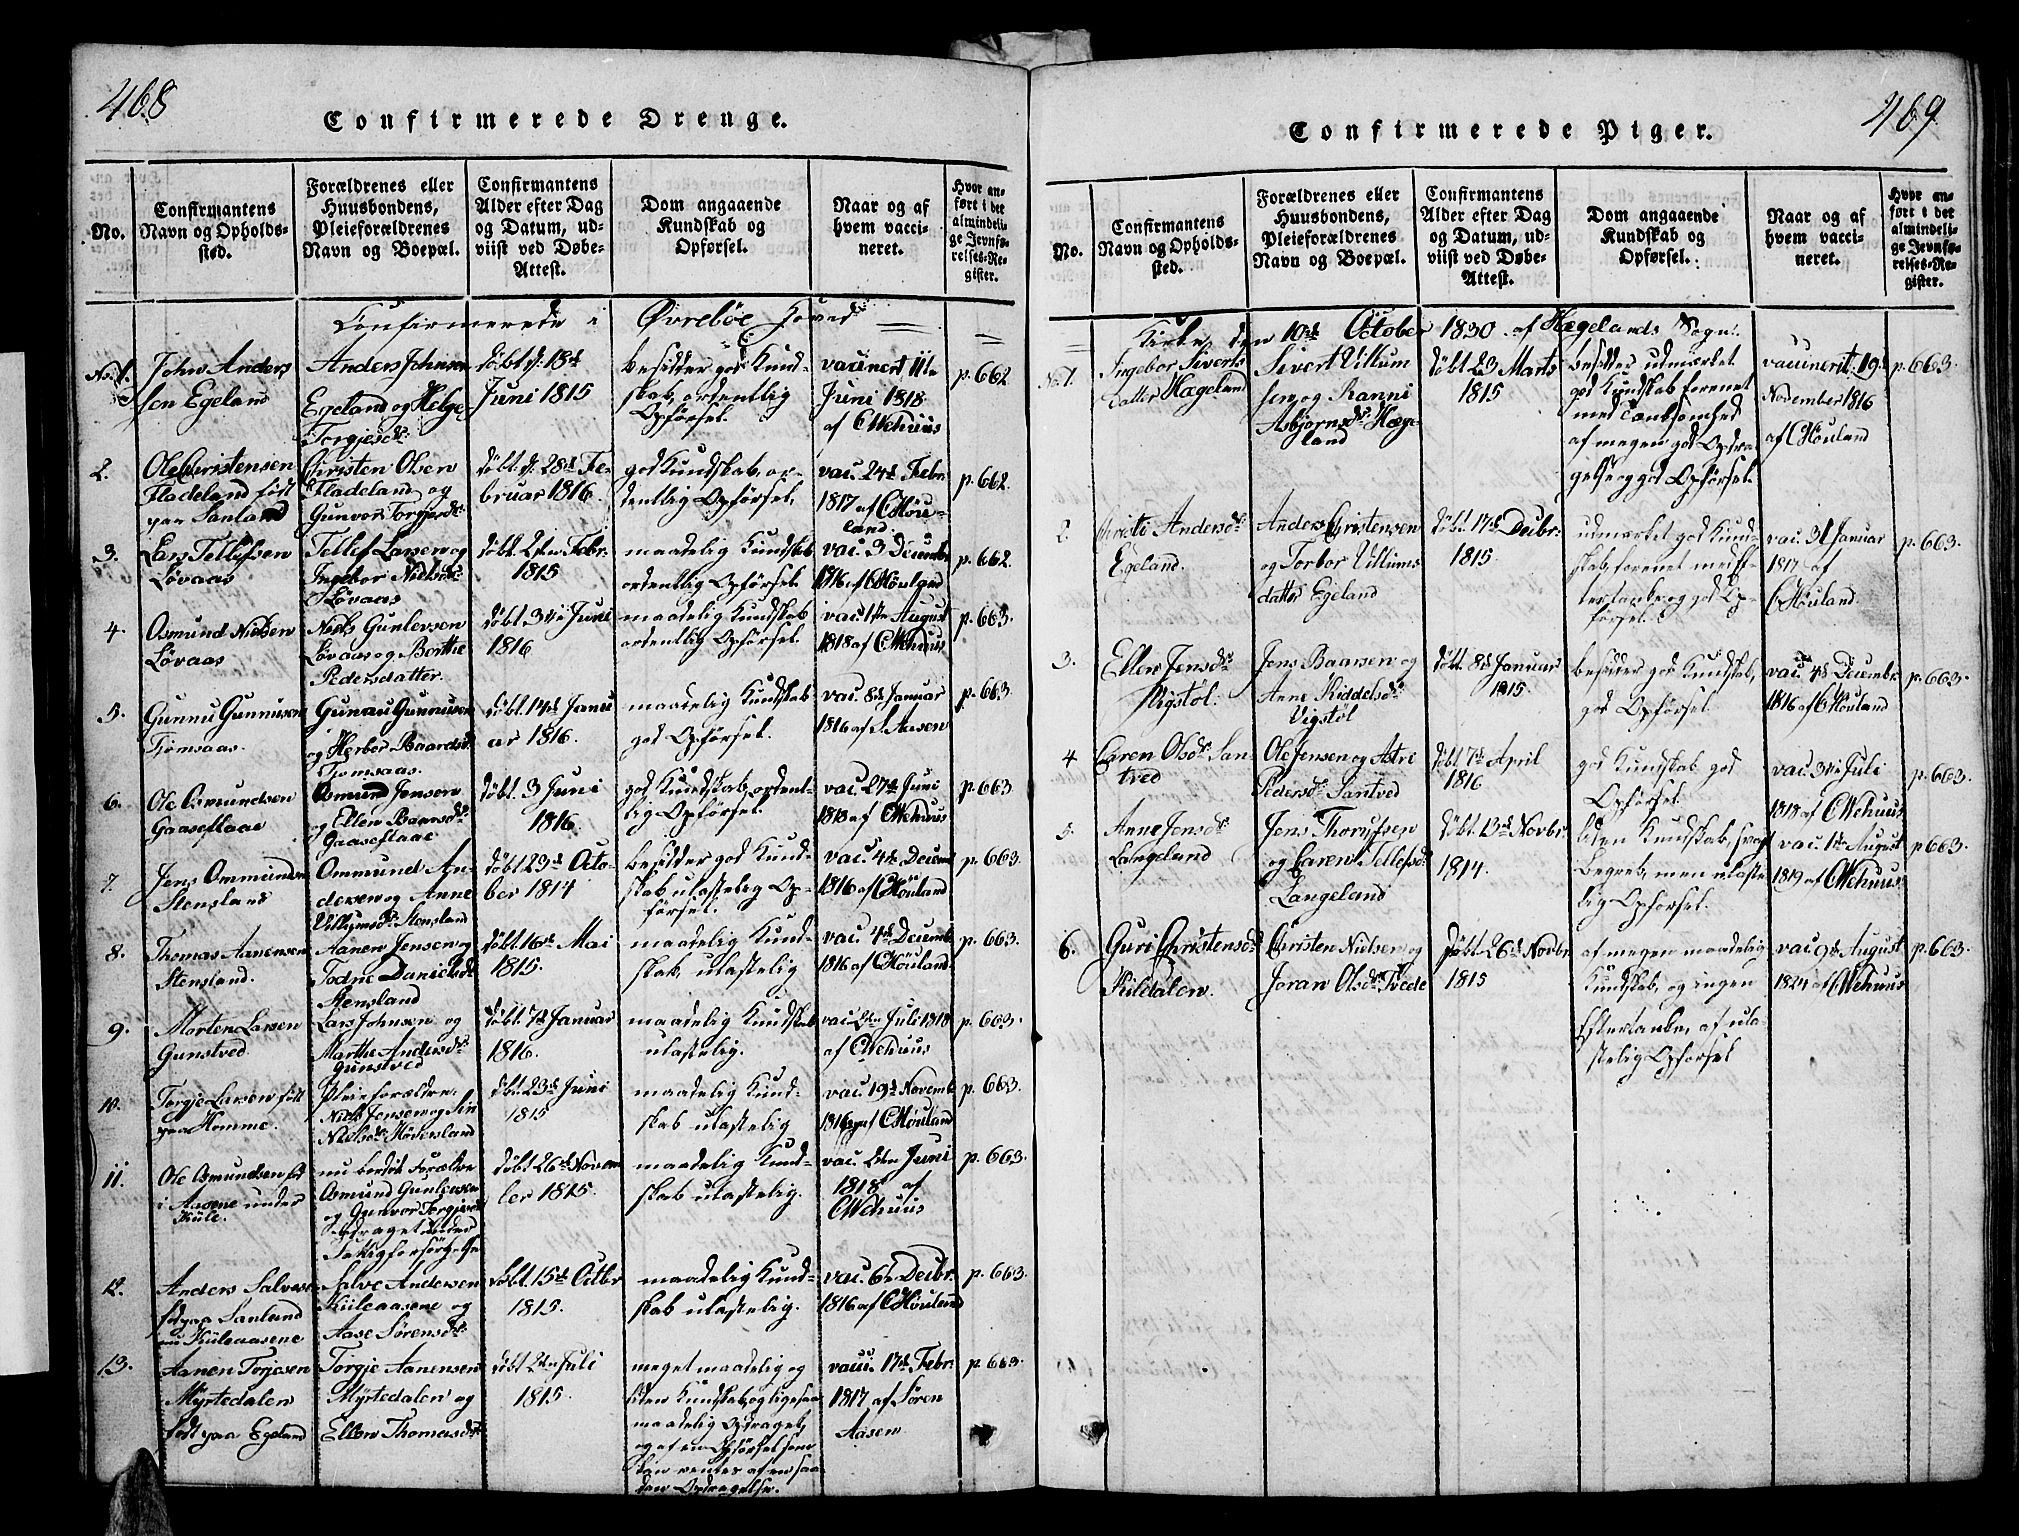 468
Confirmerede Drenge.
No.
Confirmantens
Navn og Opholds-
sted.
Forældrenes eller
Huusbondens,
Pleieforældrenes
Navn og Boepæl.
Confirmantens
Alder efter Dag
og Datum, ud-
viist ved Døbe-
Attest.
Dom angaaende
Kundskab og
Opførsel.
Naar og af
hvem vacci-
neret.
Hvor an-
ført i det
almindeli-
ge Jevnfø-
relses-Re-
gister.
Confirmerede i Øvrebøe Hoved
No. 1.
John Anders
sen Egeland
Anders Johnsen
Egeland og Helge
Torgjesdr
døbt d. 18d
Juni 1815
besidder god Kund-
skab, ordentlig
Opførsel
vaccinert 11te
Juni 1818
af C Wehuus
p. 662
2.
Ole Christensen
Fladeland født
paa Sanland
Christen Olsen
Fladeland og
Gunvor Torgjersdr
døbt d. 28d Fe-
bruar 1816.
god Kundskab, or-
dentlig Opførsel.
vac. 24d Febr
1817 af C Höu-
land.
p. 662.
3.
Lars Tellefsen
Løvaas
Tellef Larsen og
Ingebor Nielsdr
Løvaas
døbt 2den Febr.
1815
maadelig Kundskab
ordentlig Opførsel
vac. 3 Decembr
1816 af C Höuland
p. 662.
4.
Osmund Nielsen
Løvaas
Niels Gunlevsen
Løvaas og Berthe
Pedersdatter.
døbt 3die Juni
1816
maadelig Kundskab
ordentlig Opførsel.
vac. 1ste August
1818 af C Wehuus
p. 663.
5.
Gunnu Gunnusen
Tjomsaas.
Gunnu Gunnusen
og Herbor Baardsdr
Tjomsaas.
døbt 14d Janu
ar 1816.
maadelig Kundskab
god Opførsel.
vac. 8d Januar
1816 af S. Aasen
p. 663
6.
Ole Osmundsen
Gaaseflaae
Osmund Jensen
og Ellen Baarsdr
Gaaseflaae
døbt 3 Juni
1816.
god Kundskab, ordent
lig Opførsel.
vac. 27d Juni
1818 af C Wehuus
p. 663
7.
Jens Ommundsen
Stensland
Ommund An-
dersen og Anne
Villumsdr Stensland
døbt 23d Octo-
ber 1814
besidder god Kund-
skab ulastelig Op-
førsel.
vac. 4d Decemb
1816 af C Höuland
p. 663.
8.
Thomas Aanensen
Stensland.
Aanen Jensen og
Todne Danielsdr
Stensland
døbt 16d Mai
1815.
maadelig Kund-
skab, ulastelig
vac. 4d Decemb
1816 af C Höuland.
p. 663.
9.
Morten Larsen
Gunstved
Lars Johnsen og
Marthe Andersdr
Gunstved
døbt 7d Januar
1816.
maadelig Kundskab
ulastelig.
vac 2den Juli 1818
af C Wehuus
p. 663.
10.
Torgje Larsen født
paa Homme.
Pleieforældre.
Niels Jensen og Siri
Nielsdr Hødersland
døbt 23d Juni
1815
maadelig Kund-
skab ulastelig
vac 19d Novemb
1816 af C Höuland
p. 663.
11.
Ole Osmundsen fød
i Aasene under
Kiile.
nu boende Forældre
Osmund Gunlevsen
og Gunvor Torgjersdr
opdraget under
Fattigforsørgelse
døbt 26d Novem
ber 1815.
maadelig Kund-
skab ulastelig.
vac. 2den Juni
1818 af
C Wehuus
p. 663.
12.
Anders Salvesen
fød paa Sanland
nu Kiileaasene
Salve Andersen
Kiileaasene og
Aase Sørensdr
døbt 15d Octbr
1815.
maadelig Kund-
skab ulastelig.
vac. 6te Decbr.
1816 af C Höuland
p. 663.
13.
Aanen Torjesen
Myrtedalen
født paa Egeland
Torgje Aanensen
Myrtedalen og
Ellen Thomasdr
døbt 2den Juli
1815.
meget maadelig og
liden Kundskab, og ligesaa
maadelig Opdraget,
og af en Opførsel som
kan ventes af en saa-
dan Opdragelse.
vacc. 17d Febr:
1817 af Søren
Aasen
p. 663.
469
Confirmerede Piger.
No.
Confirmantens
Navn og Opholds-
sted.
Forældrenes eller
Huusbondens,
Pleieforældrenes
Navn og Boepæl.
Confirmantens
Alder efter Dag
og Datum, ud-
viist ved Døbe-
Attest.
Dom angaaende
Kundskab og
Opførsel.
Naar og af
hvem vacci-
neret.
Hvor an-
ført i det
almindeli-
ge Jevnfø-
relses-Re-
gister.
Kirke den 10de October 1830 af Hægelands Sogn:
No. 1.
Ingebor Siverts
datter Hægeland
Sivert Villum
sen og Ranni
Asbjornsdr Hæge
land
døbt 23 Marts
1815
besidder udmerket
god Kundskab forenet
med Tænksomhed
af megen god Opdra
gelse og god Opførsel.
vaccinerit 19d
November 1816
af C Höuland
p. 663.
2.
Christi Andersdr
Egeland.
Anders Christensen
og Torbor Villums
datter Egeland
døbt 17d Decbr:
1815.
udmerket god Kund-
skab forenet med Ef-
tertanke og god Op-
førsel.
vac. 31 Januar
1817 af
C Höuland.
p. 663.
3.
Ellen Jensdr
Vigstøl.
Jens Baarsen og
Anne Kiddelsdr
Vigstøl
døbt 8d Januar
1815.
besidder god Kundskab,
god Opførsel.
vac. 4d Decembr.
1816 af C Höuland
p. 663.
4
Caren Olsdr San-
tved
Ole Jensen og Astri
Pedersdr Santved
døbt 7d April
1816
god Kundskab, god
Opførsel.
vac. 3die Juli
1818 af C Wehuus
p. 663.
5.
Anne Jensdr
Langeland
Jens Thorufsen
og Caren Tellefsdr
Langeland
døbt 13d Novbr.
1814.
liden Kundskab, svagt
Begreb, men ulaste
lig Opførsel.
vac. 1ste August
1819 af C Wehuus
p. 663.
6.
Guri Christensdr
Kuldalen.
Christen Nielsen og
Joran Olsdr Tvede
døbt 26d Novbr
1815
af megen maadelig
Kundskab, og ingen
Eftertanke, af ula-
stelig Opførsel
vac 9d August
1824 af C Wehuus
p. 663.